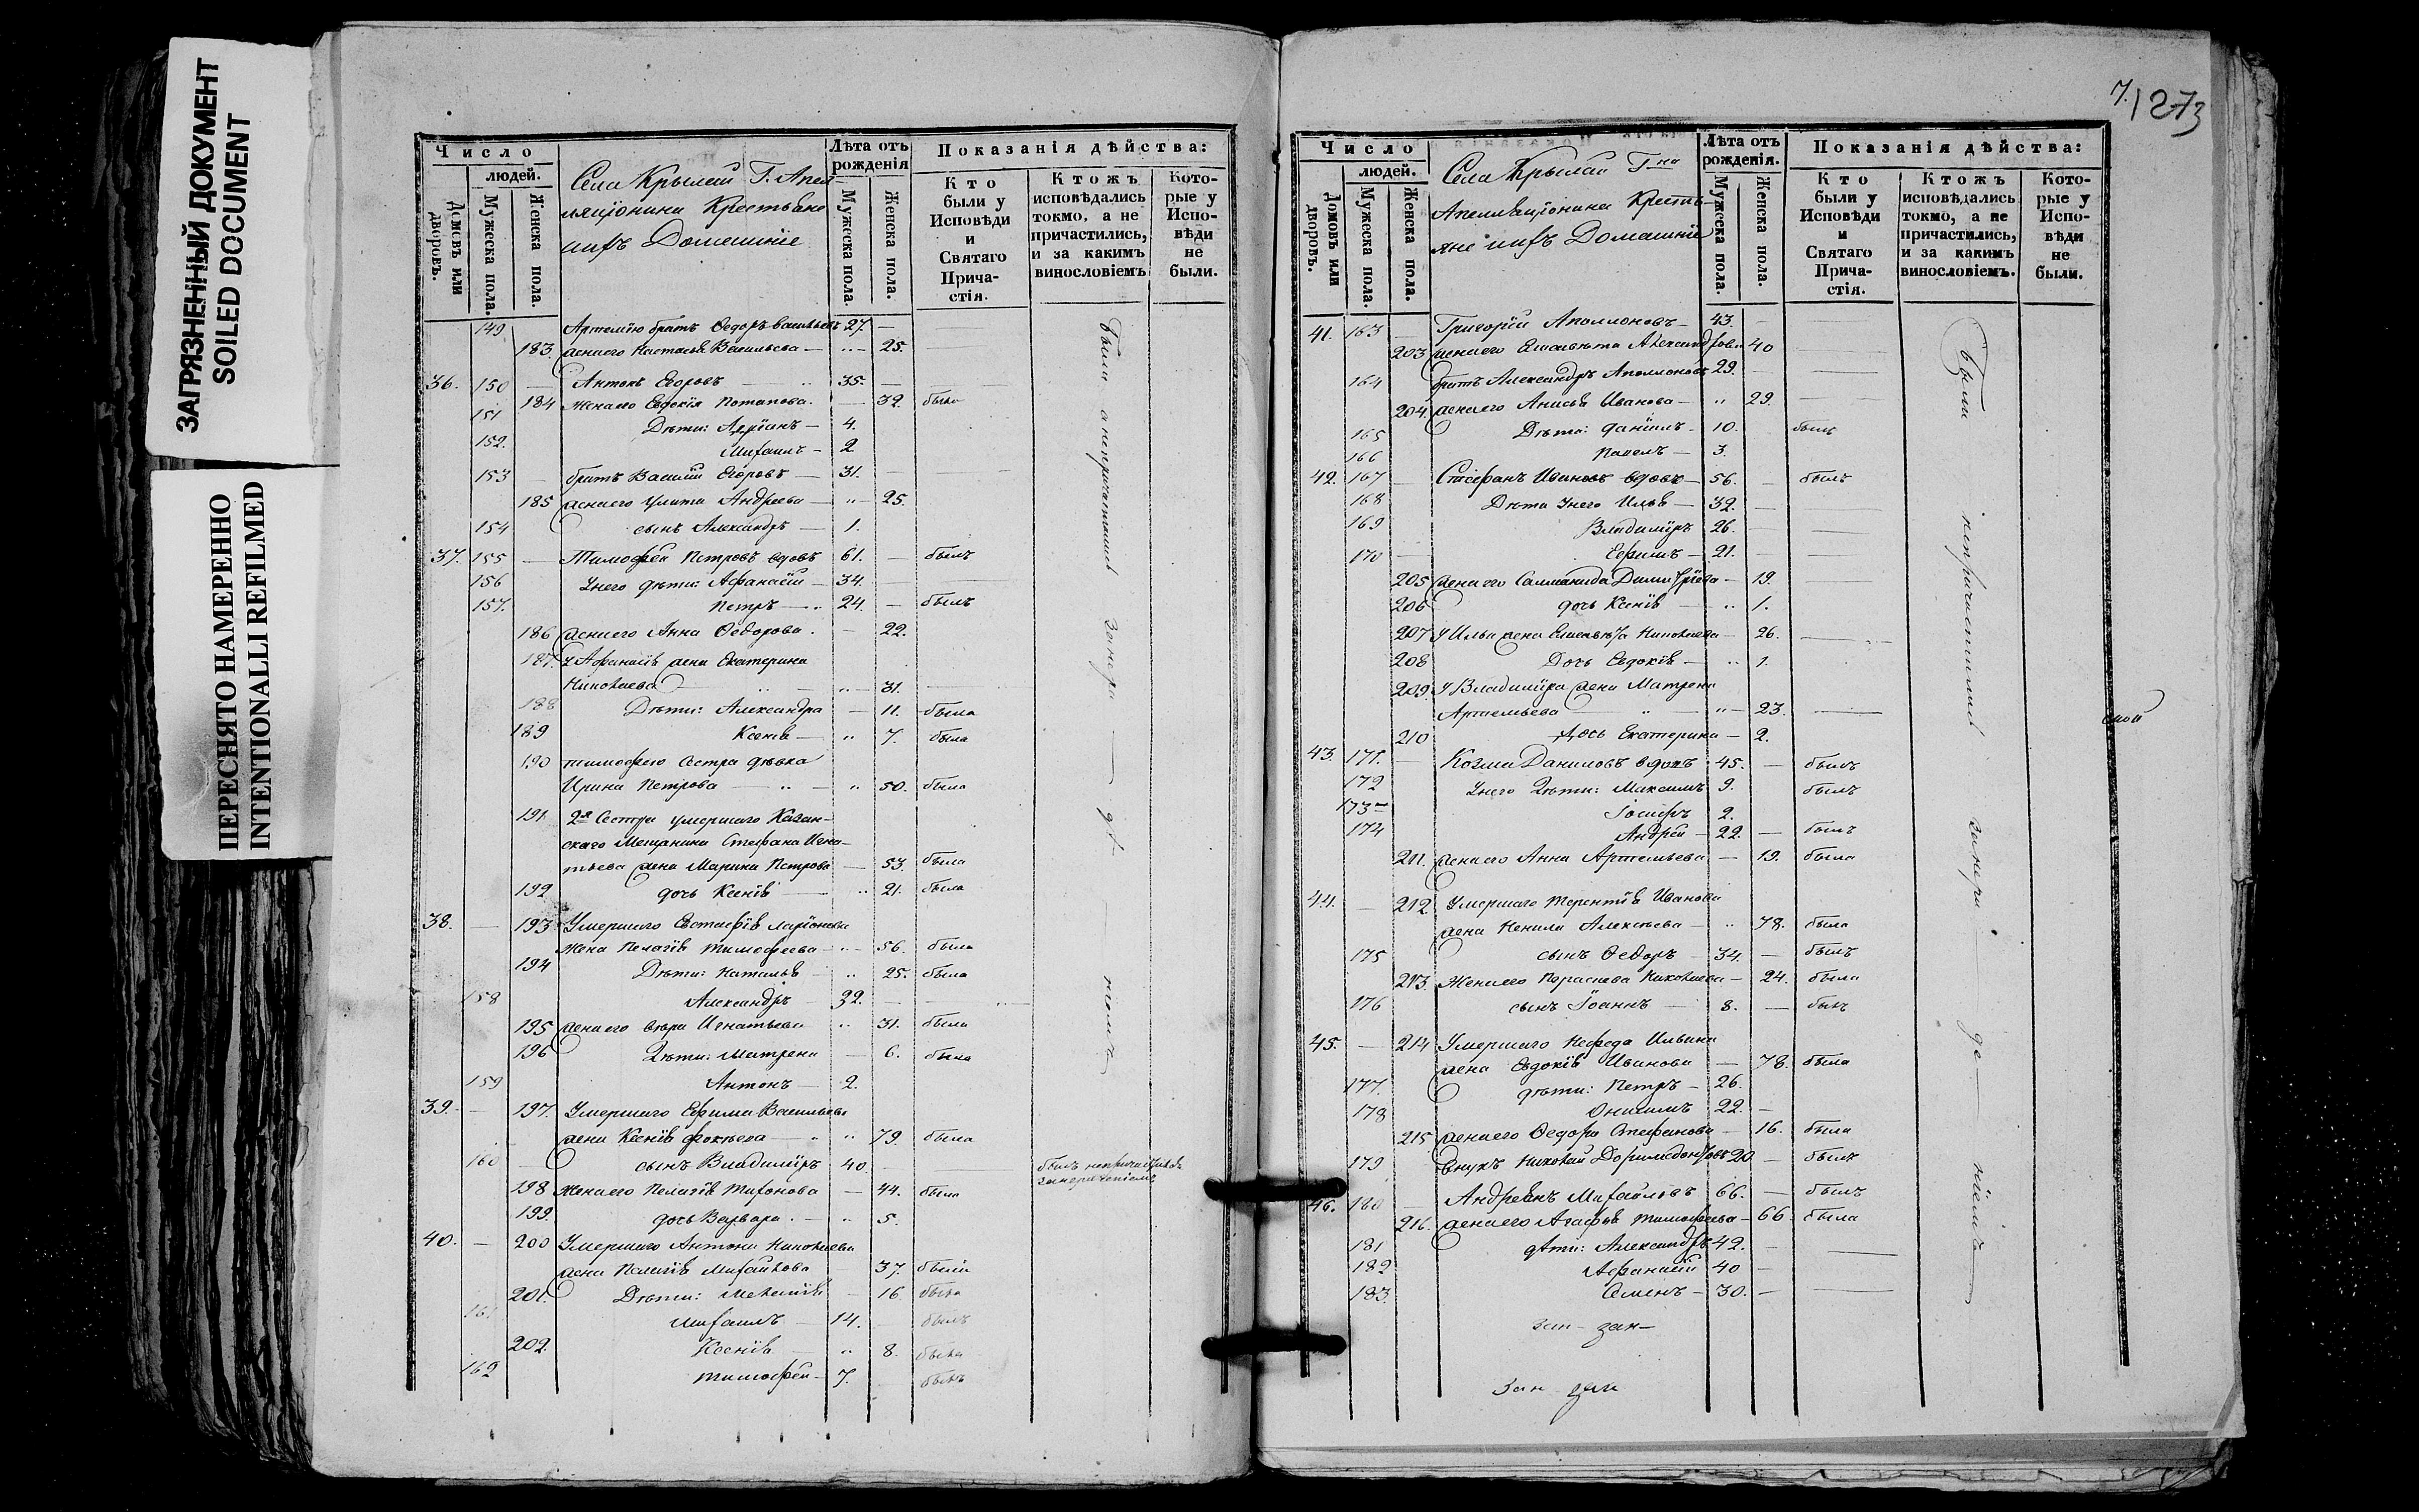 ЗАГРЯЗНЕННЫЙ ДОКУМЕНТ
SOILED DOCUMENT
ПЕРЕСНЯТО НАМЕРЕННО
INTENTIONALLI REFILMED
Число
людей.
Домовъ или дворовъ.
Мужеска пола.
Женска пола.
Села Крылай Г. Апел-
ляціонина Крестьяне
ихъ Домашніе
Лѣта отъ рожденія
Мужеска пола.
Женска пола.
Показанія дѣйства:
Кто были у Исповѣди и Святаго Прича-стія.
Ктожъ исповѣдались токмо, а не причастились, и за какимъ винословіемъ
Кото-рые у Испо-вѣди не были.
149 Артемію братъ Ѳедоръ Васильевъ 27. —
183. жена его Настасья Васильева — 25.
36. 150 — Антонъ Егоровъ 35. —
184 Жена его Евдокія Потапова. — 32. была
151 Дѣти: — 4.
152. Михаилъ — 2
153 братъ Василій Егоровъ — 31. —
185 жена его Улита Андреева — 25.
154 сынъ Александръ — 1.
37. 155 — Тимофей Петровъ вдовъ 61. — былъ
156 Унего дѣти: Афанасій — 34. —
157. Петръ — 24. — былъ
186 жена его Анна Ѳедорова. — 22.
187. У Афанасія жена Екатерина
Николаева — 31.
188 Дѣти: Александра — 11. была
189 Ксенія — 7. была
190 Тимофею Сестра дѣвка
Ирина Петрова — 50. была
191 2я Сестра умершаго Казан-
скаго Мещанина Стефана Игна-
тьева жена Марина Петрова — 53. была
192 дочь Ксенія — 21. была
38. — 193 Умершаго Евстафія Ларіонова
жена Пелагія Тимофеева — 56. была
194 Дѣти: Наталья — 25. была
158 Александръ 32. —
195 жена его Вѣра Игнатьева 31. была
196 Дѣти: Матрена — 6. была
159 Антонъ — 2.
39. — 197. Умершаго Ефима Васильева
жена Ксенія Фоктева — 79. была
160 — сынъ Владиміръ 40. —
198 Жена его Пелагія Тихонова — 44. была
199. дочь Варвара. — 5.
40. — 200 Умершаго Антона Николаева
жена Пелагія Михайлова 37. была
201. Дѣти: — 16 была
161 Михаилъ — 14. былъ
202. Ксенія 8. была
162 Тимофей — 7. былъ
Были а непричатились
7.
1273
Число
людей.
Домовъ или дворовъ.
Мужеска пола.
Женска пола.
Села Крылай Гна
Апелляціонина Кресть-
яне ихъ Домашніе
Лѣта отъ рожденія.
Мужеска пола.
Женска пола.
Показанія дѣйства:
Кто были у Исповѣди и Святаго Прича-стія.
Ктожъ исповѣдались токмо, а не причастились, и за какимъ винословіемъ.
Кото-рые у Испо-вѣди не были.
41. 163 — Григорій Аполлоновъ — 43. —
203 жена его Елисавета Александрова 40
164 братъ Александръ Аполлоновъ 29. —
204. жена его Анисья Иванова — 29.
165 Дѣти: Даніилъ — 10. былъ
166 Павелъ — 3.
42. 167 — Стефанъ Ивановъ вдовъ — 56. — былъ
168 Дѣти Унего Илья — 32. —
169 Владиміръ 26. —
170 Ефимъ — 21. —
205 жена его Саломанида Димитріева — 19.
206 дочь Ксенія 1.
207 У Ильи жена Елисавета Николаева — 26.
208 Дочь Евдокія — 1.
209. У Владиміра жена Матрена
Артемьева — 23.
210 дочь Екатерина — 2.
43. 171. — Козма Даниловъ вдовъ 45. — былъ
172 Унего Дѣти: Максимъ 9. былъ
173 Іосифъ 2.
174 Андрей — 22. — былъ
211. жена его Анна Артемьева — 19. была
44. — 212 Умершаго Терентія Иванова
жена Ненила Алексѣева — 78. была
175 сынъ Ѳедоръ — 34. — былъ
213. Жена его Параскева Николаева — 24. была
176 сынъ Іоаннъ 8. — былъ
45. — 214 Умершаго Нефеда Ильина
жена Евдокія Иванова — 78. была
177. дѣти: Петръ — 26.
178 Онисимъ 22. —
215 жена его Ѳедора Стефанова — 16. была
179 внукъ Николай 20 — былъ
46. 180 — Андреянъ Михайловъ 66. — былъ
216. жена его Агафья Тимофеева — 66. была
181 дѣти: Александръ 42. —
182 Афанасій 40 —
183. Семенъ — 30. —
Были непричастились